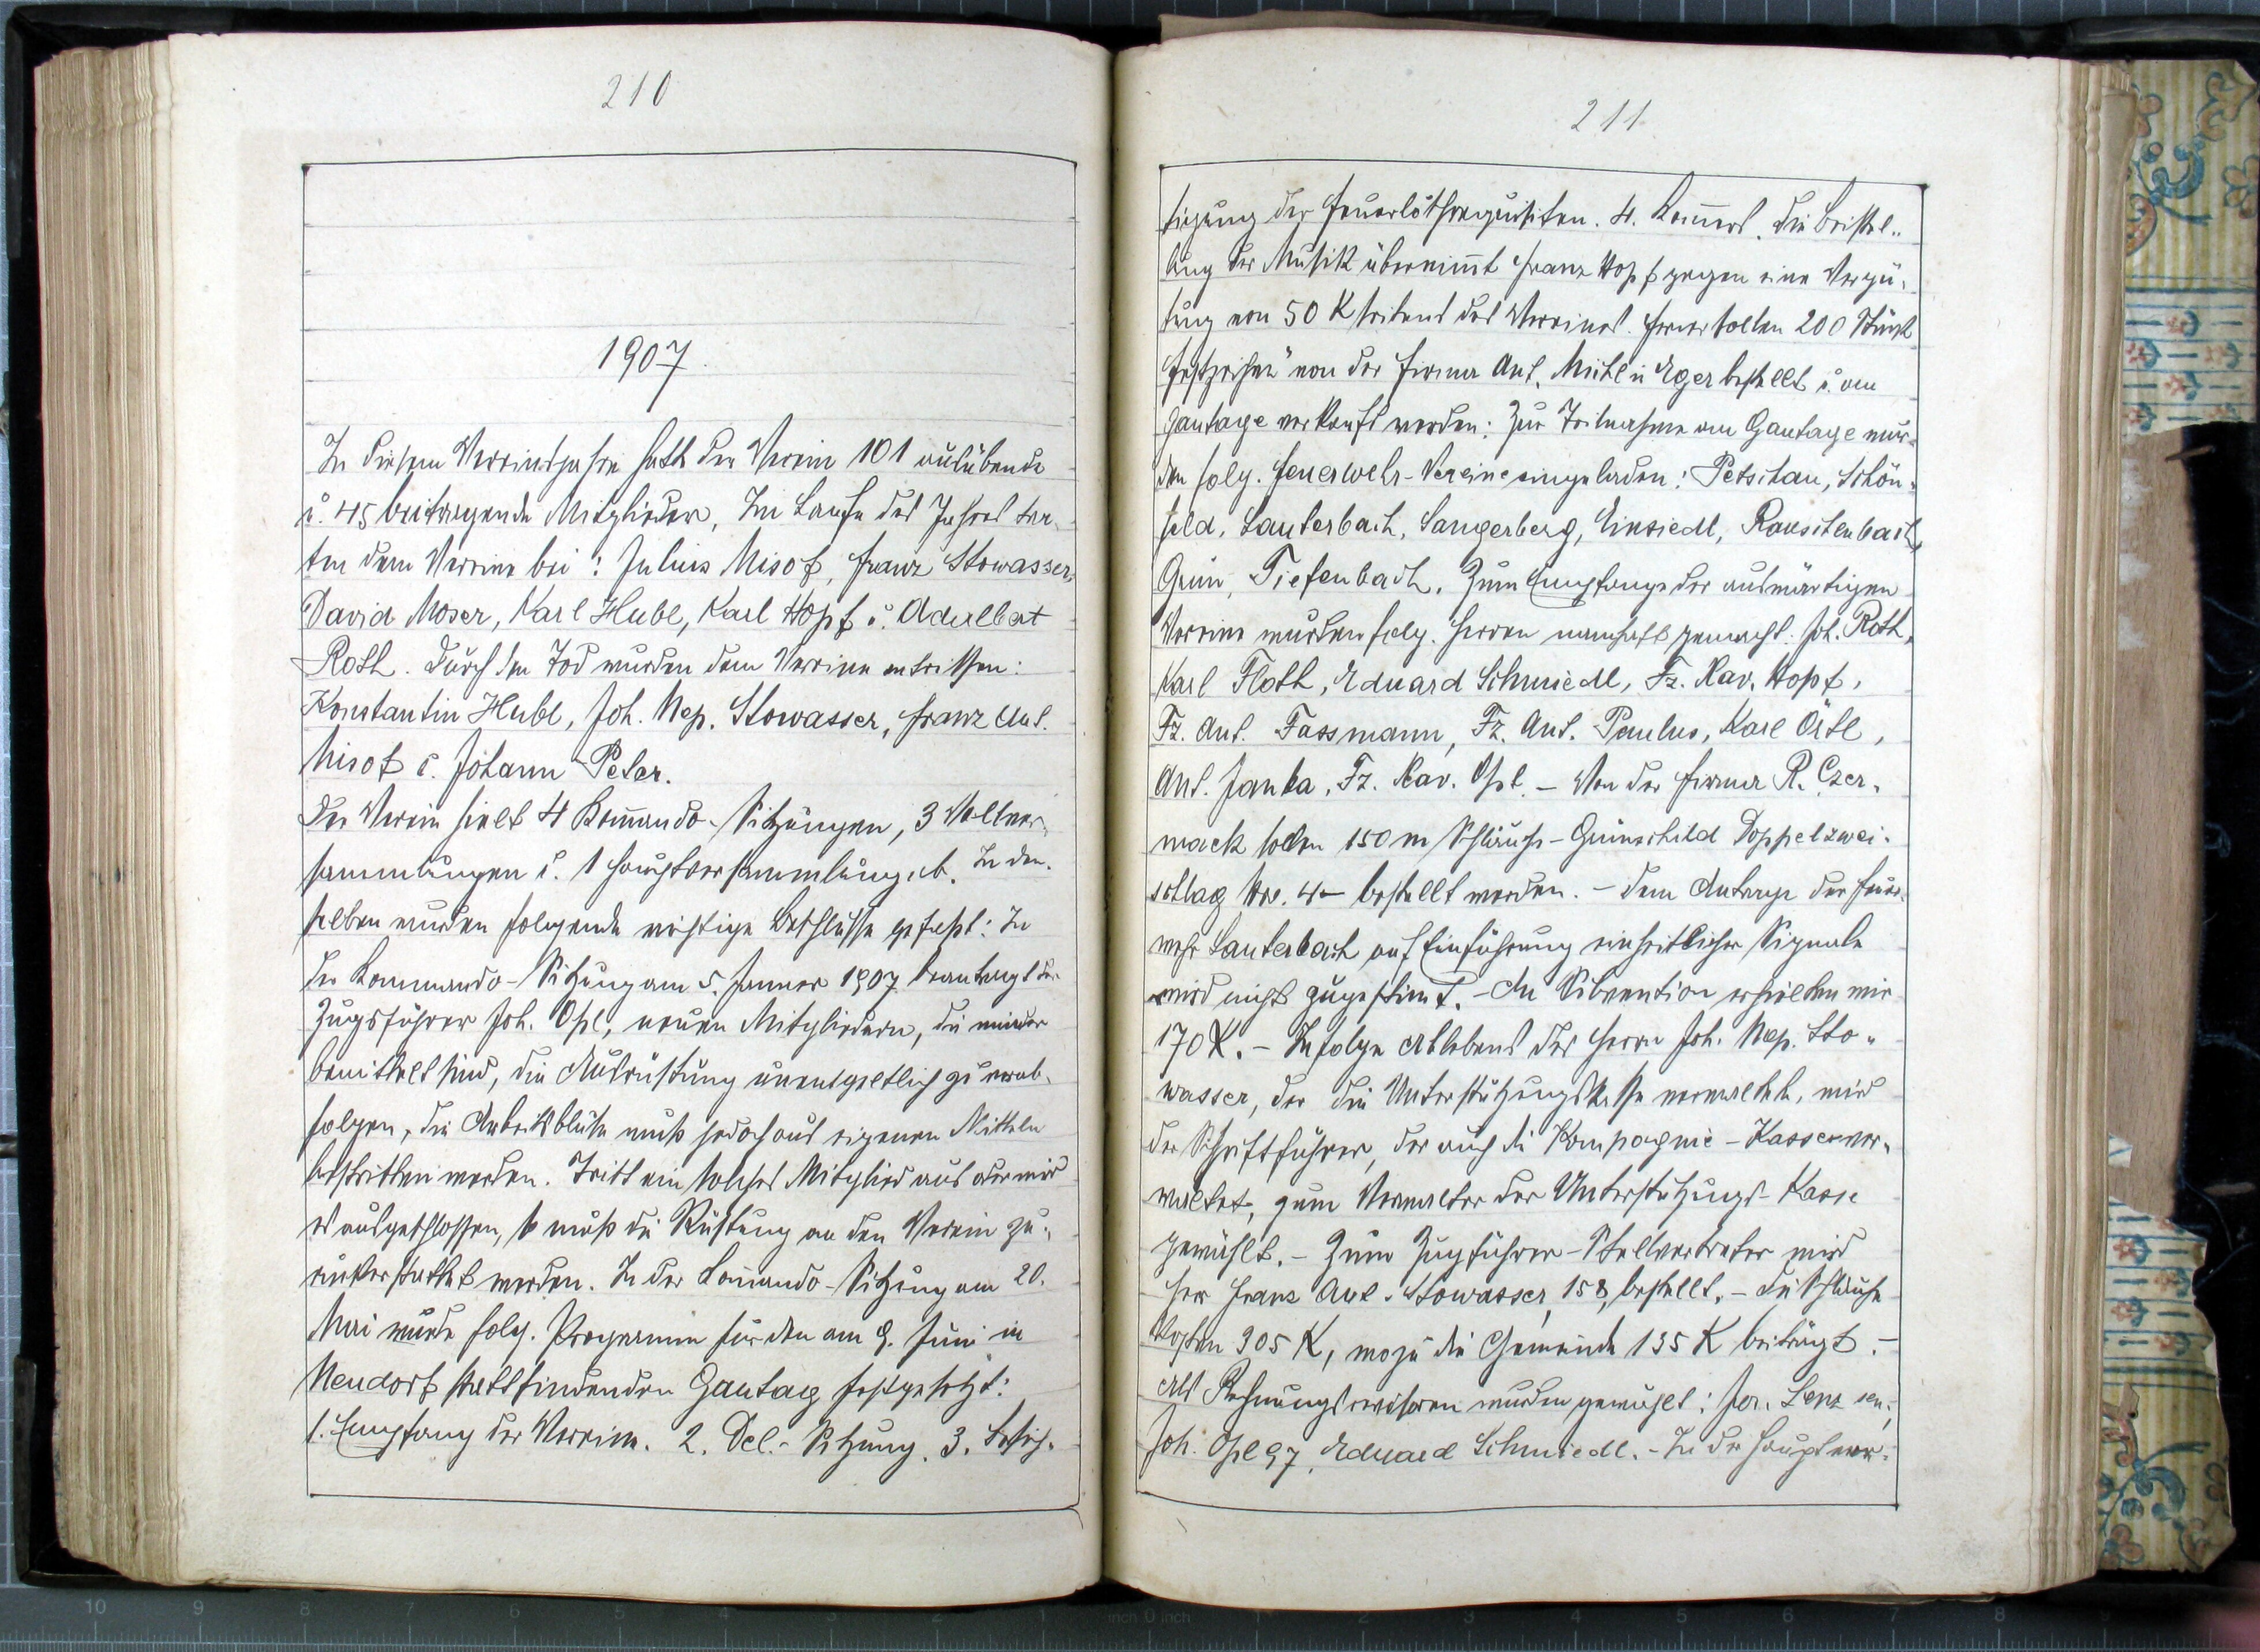 210
1907.
In diesem Vereinsjahre hatte der Verein 101 ausübende
u. 45 beitragende Mitglieder, Im Laufe des Jahres tra-
ten dem Vereine bei: Julius Misof, Franz Stowasser,
David Moser, Karl Hubl, Karl Hopf u. Adalbert
Roth. Durch den Tod wurden dem Vereine entrissen:
Konstantin Hubl, Joh. Nep. Stowasser, Franz Ant.
Misof u. Johann Peter.
Der Verein hielt 4 Komando-Sitzungen, 3 Vollver-
sammlungen u. 1 Hauptversammlung ab. In den-
selben wurden folgende wichtige Beschlüsse gefaßt: In
der Kommando-Sitzung am 5. Jänner 1907 beantragt der
Zugsführer Joh. Opl, neuen Mitgliedern, die minder
bemittelt sind, die Ausrüstung unentgeltlich zu verab-
folgen, die Arbeitsbluse muß jedoch aus eigenen Mitteln
bestritten werden. Tritt ein solches Mitglied aus oder wird
es ausgeschlossen, so muß die Rüstung an den Verein zu-
rückerstattet werden. In der Komando-Sitzung am 20.
Mai wurde folg. Programm für den am 9. Juni in
Neudorf stattfindenden Gautag festgesetzt:
1. Empfang der Vereine. 2. Del.-Sitzung. 3. Besich-
211
tigung der Feuerlöschrequisiten. 4. Komers. Die Beistel-
lung der Musik übernimt Franz Hopf gegen eine Vergü-
tung von 50 K seitens des Vereines. Ferner sollen 200 Stück
Festzeichen von der Firma Ant. Mühl in Eger bestellt u. am
Gautage verkauft werden: Zur Teilnahme am Gautage wur-
den folg. Feuerwehr-Vereine eingeladen: Petschau, Schön-
feld, Lauterbach, Sangerberg, Einsiedl, Rauschenbach,
Grün, Tiefenbach. Zum Empfange der auswärtigen
Vereine wurden folg. Herren namhaft gemacht. Joh. Roth,
Karl Floth, Eduard Schmiedl, Fz. Xav. Hopf,
Fz. Ant. Fassmann, Fz. Ant. Paulus, Karl Örtl,
Ant. Janka, Fz. Xav. Opl. – Von der Firma R. Czer-
mack sollen 150 m Schläuche-Grünschild Doppelzwei-
schlag Nro. 4 – bestellt werden. – Dem Antrage der Feuer-
wehr Lauterbach auf Einführung einheitlicher Signale
wird nicht zugestimt. – An Subvention erhielten wir
170 K. – Infolge Ablebens des Herrn Joh. Nep. Sto-
wasser, der die Unterstützungskasse verwaltete, wird
der Schriftführer, der auch die Kompagnie-Kasse ver-
waltet, zum Verwalter der Unterstützungs-Kasse
gewählt. – Zum Zugführer-Stellvertreter wird
Herr Franz Ant. Stowasser, 158, bestellt. – Die Schläuche
kosten 305 K, wozu die Gemeinde 135 K beiträgt. –
Als Rechnungsrevisoren wurden gewählt: Jos. Lenz sen.,
Joh. Opl 97, Eduard Schmiedl. – In der Hauptver-